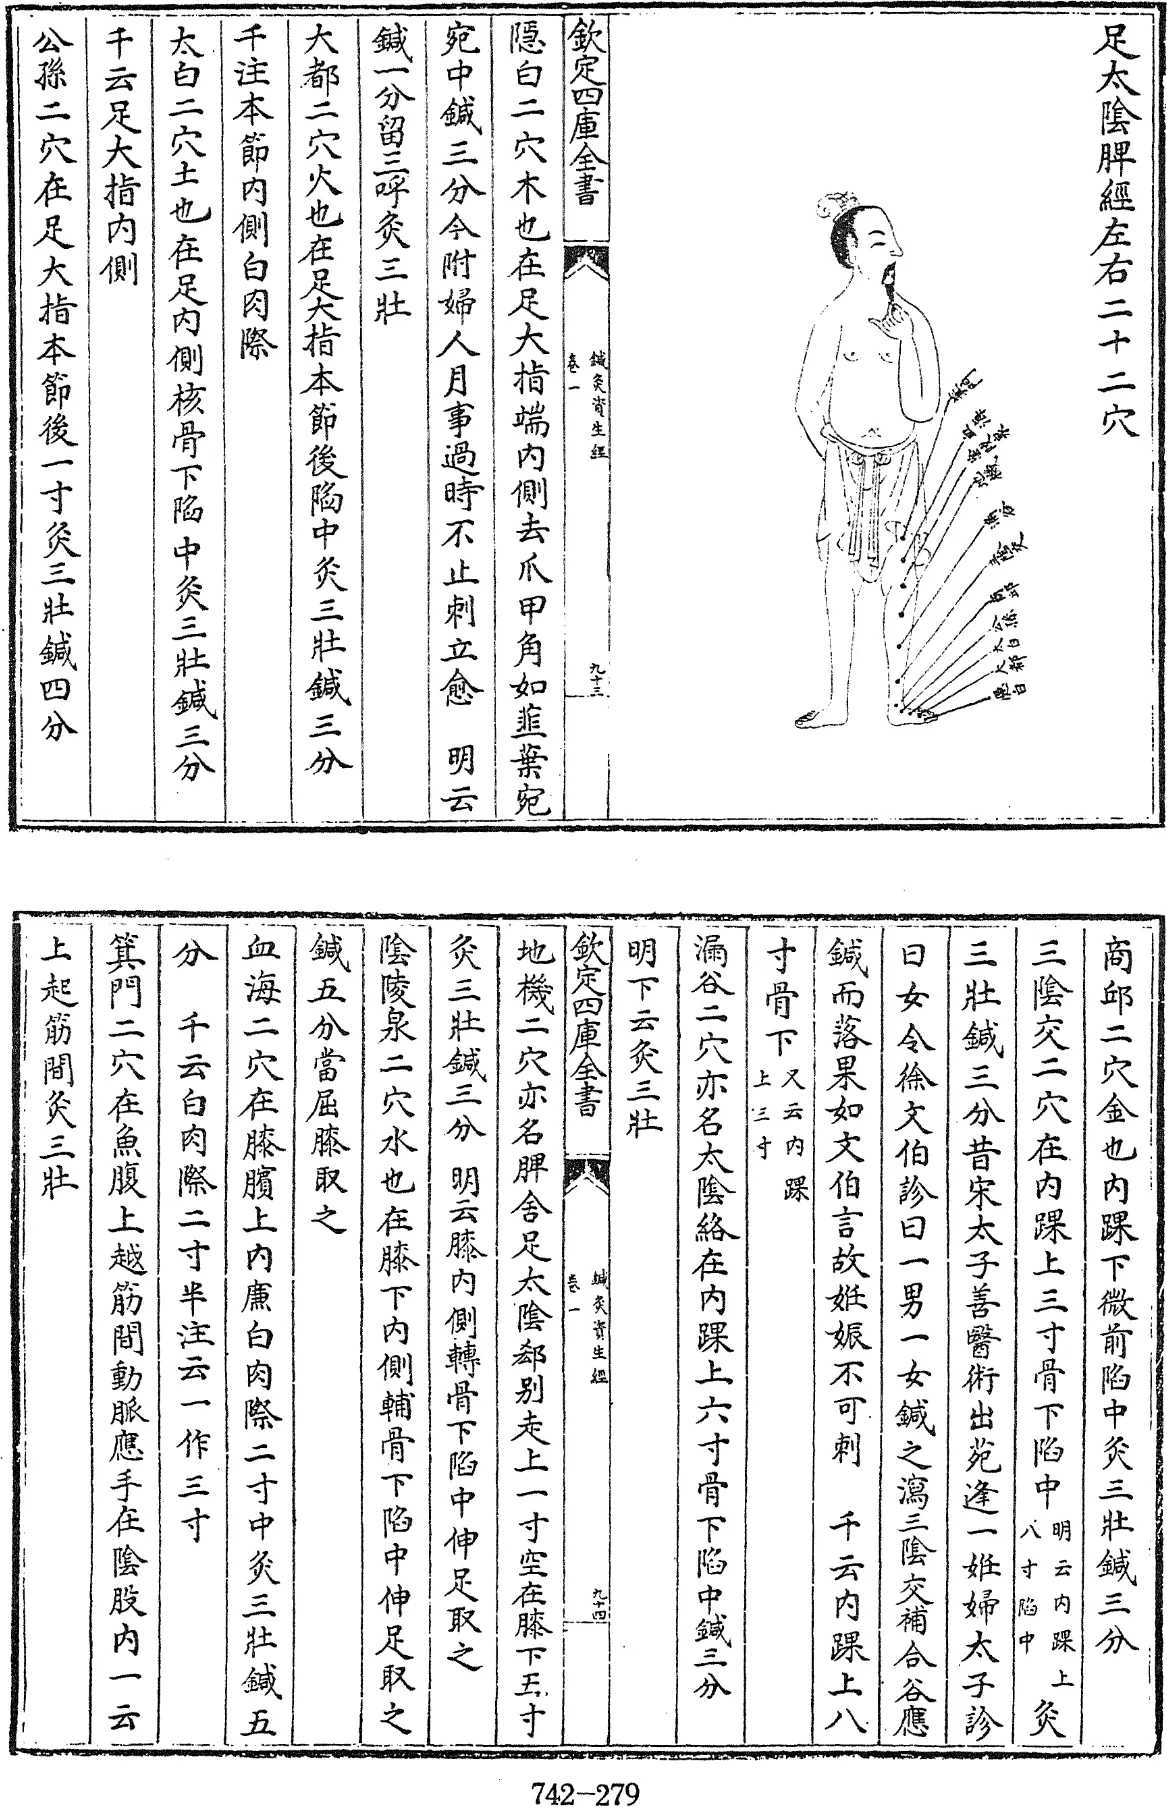 足太陰脾經左右二十二穴
箕門
血海
陰陵泉
地機
漏谷
三陰交
商邱
公孫
太白
大都
隱白
欽定四庫全書
鍼灸資生經
卷一
九十三
隱白二穴木也在足大指端内側去爪甲角如韮葉宛
宛中鍼三分今附婦人月事過時不止刺立愈　明云
鍼一分留三呼灸三壯
大都二穴火也在足大指本節後陷中灸三壯鍼三分
千注本節内側白肉際
太白二穴土也在足内側核骨下陷中灸三壯鍼三分
千云足大指内側
公孫二穴在足大指本節後一寸灸三壯鍼四分
商邱二穴金也内踝下微前陷中灸三壯鍼三分
三陰交二穴在内踝上三寸骨下陷中明云内踝上八寸陷中灸
三壯鍼三分昔宋太子善醫術出苑逢一姙婦太子診
曰女令徐文伯診曰一男一女鍼之瀉三陰交補合谷應
鍼而落果如文伯言故姙娠不可刺　千云内踝上八
寸骨下又云内踝上三寸
漏谷二穴亦名太陰絡在内踝上六寸骨下陷中鍼三分
明下云灸三壯
欽定四庫全書
鍼灸資生經
卷一
九十四
地機二穴亦名脾舍足太陰郄別走上一寸空在膝下五寸
灸三壯鍼三分　明云膝内側轉骨下陷中伸足取之
陰陵泉二穴水也在膝下内側輔骨下陷中伸足取之
鍼五分當屈膝取之
血海二穴在膝臏上内廉白肉際二寸中灸三壯鍼五
分　千云白肉際二寸半注云一作三寸
箕門二穴在魚腹上越筋間動脈應手在陰股内一云
上起筋間灸三壯
742-279